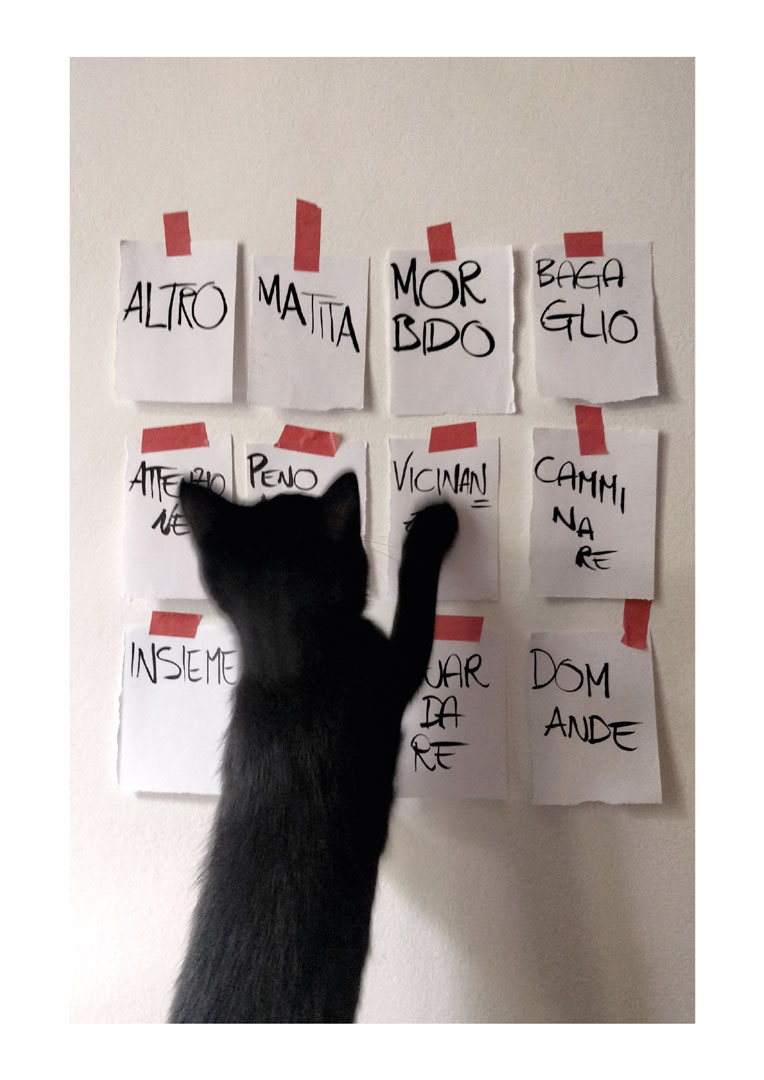 ALTRO
MATITA
MOR
BIDO
BAGA
GLIO
ATTENZIO
NE
PENO
VICINAN
CAMMI
NA
RE
INSIEME
UAR
DA
RE
DOM
ANDE